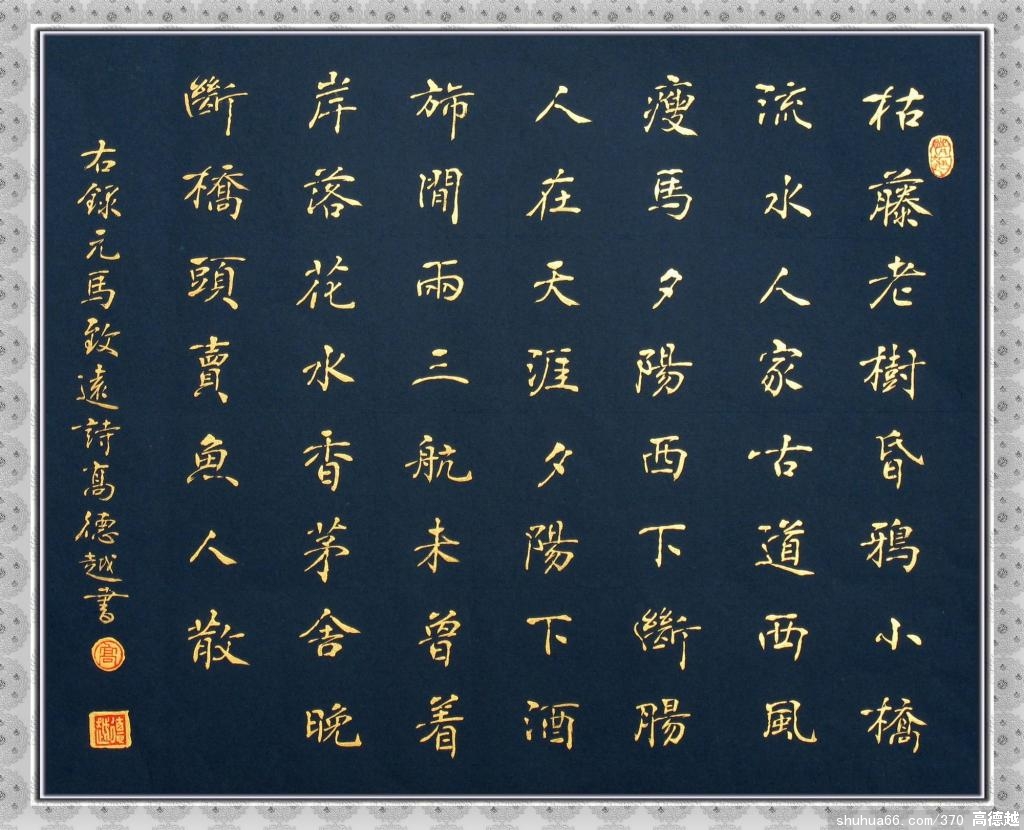 枯藤老樹昏鴉小橋
流水人家古道西風
瘦馬夕陽西下斷腸
人在天涯夕陽下酒
斾閒兩三航未曾着
岸落花水香茅舍晚
斷橋頭賣魚人散
右錄元馬致遠詩高德越書
高
德越
shuhua66.com/370 高德越